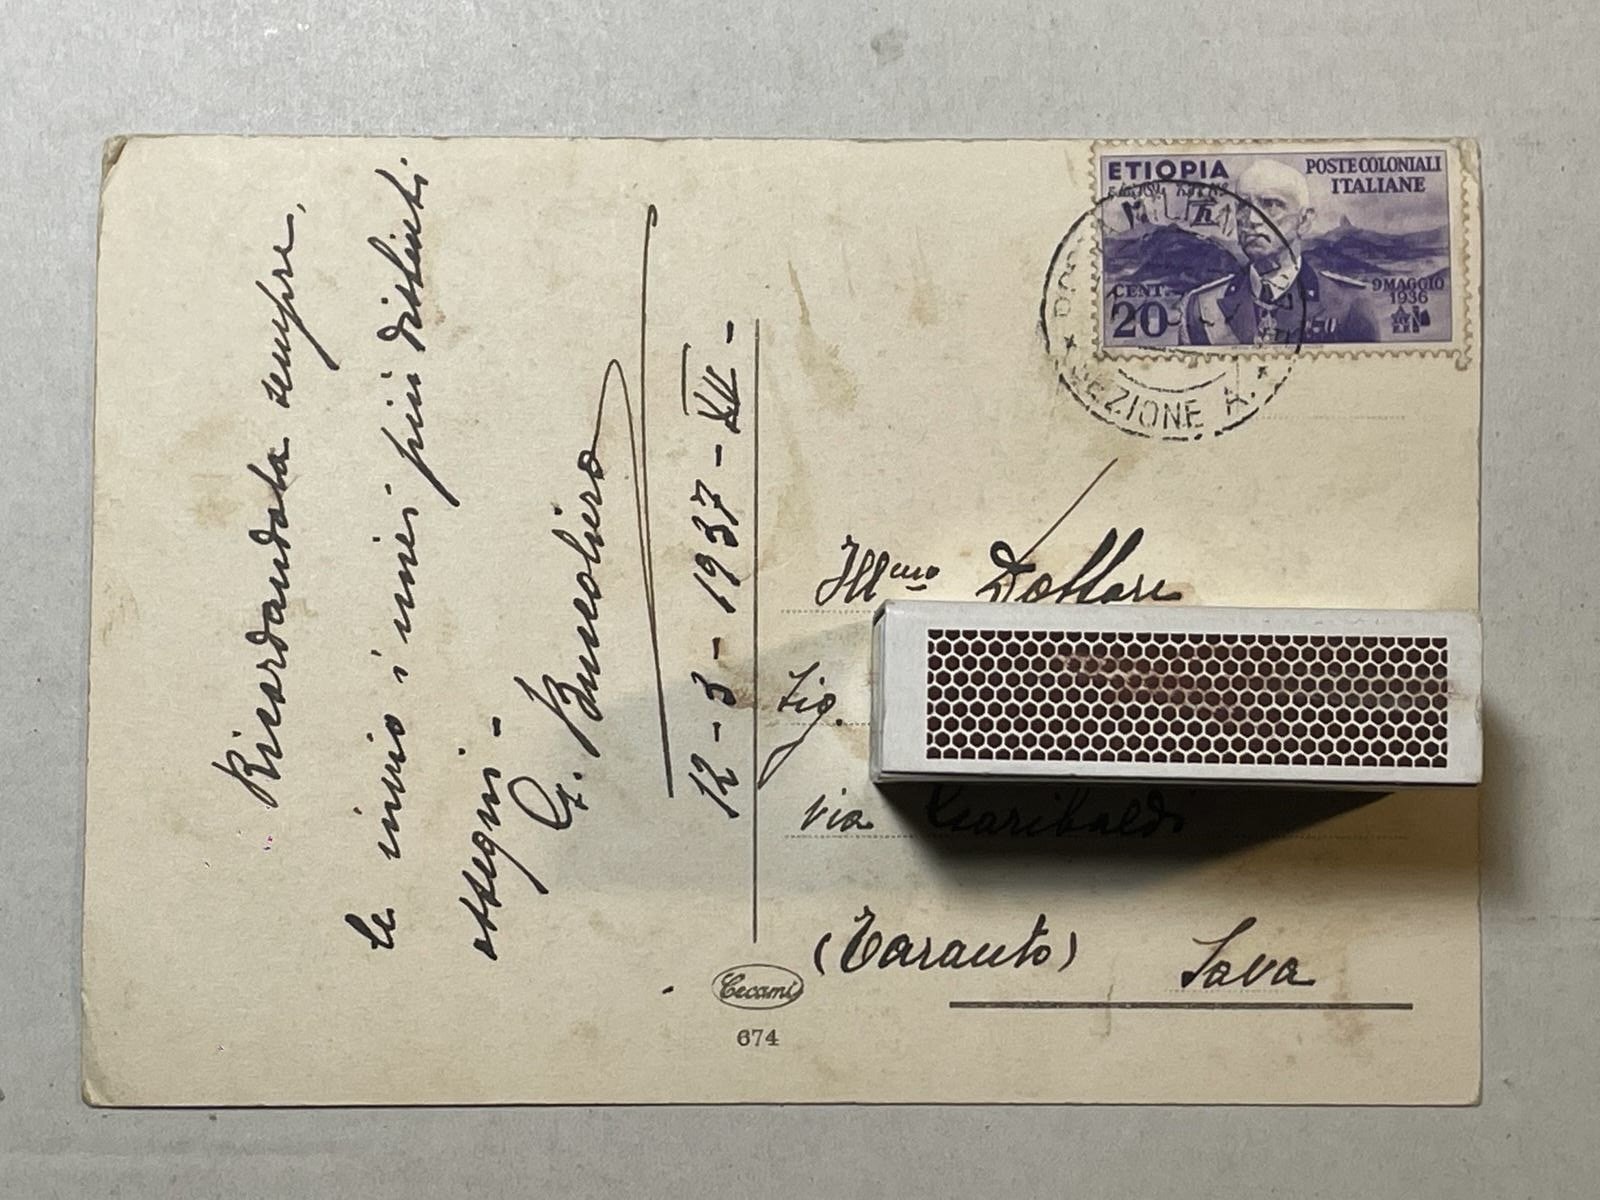 Ricordandola sempre,
le invio i miei più distinti
ossequi -
G. Bucoliero
12 - 3 - 1937 - XV -
ETIOPIA
POSTE COLONIALI
ITALIANE
CENT.
20
9 MAGGIO
1936
SEZIONE A.
Ill.mo Dottore
Sig.
via Garibaldi
(Taranto) Sava
Cecami
674